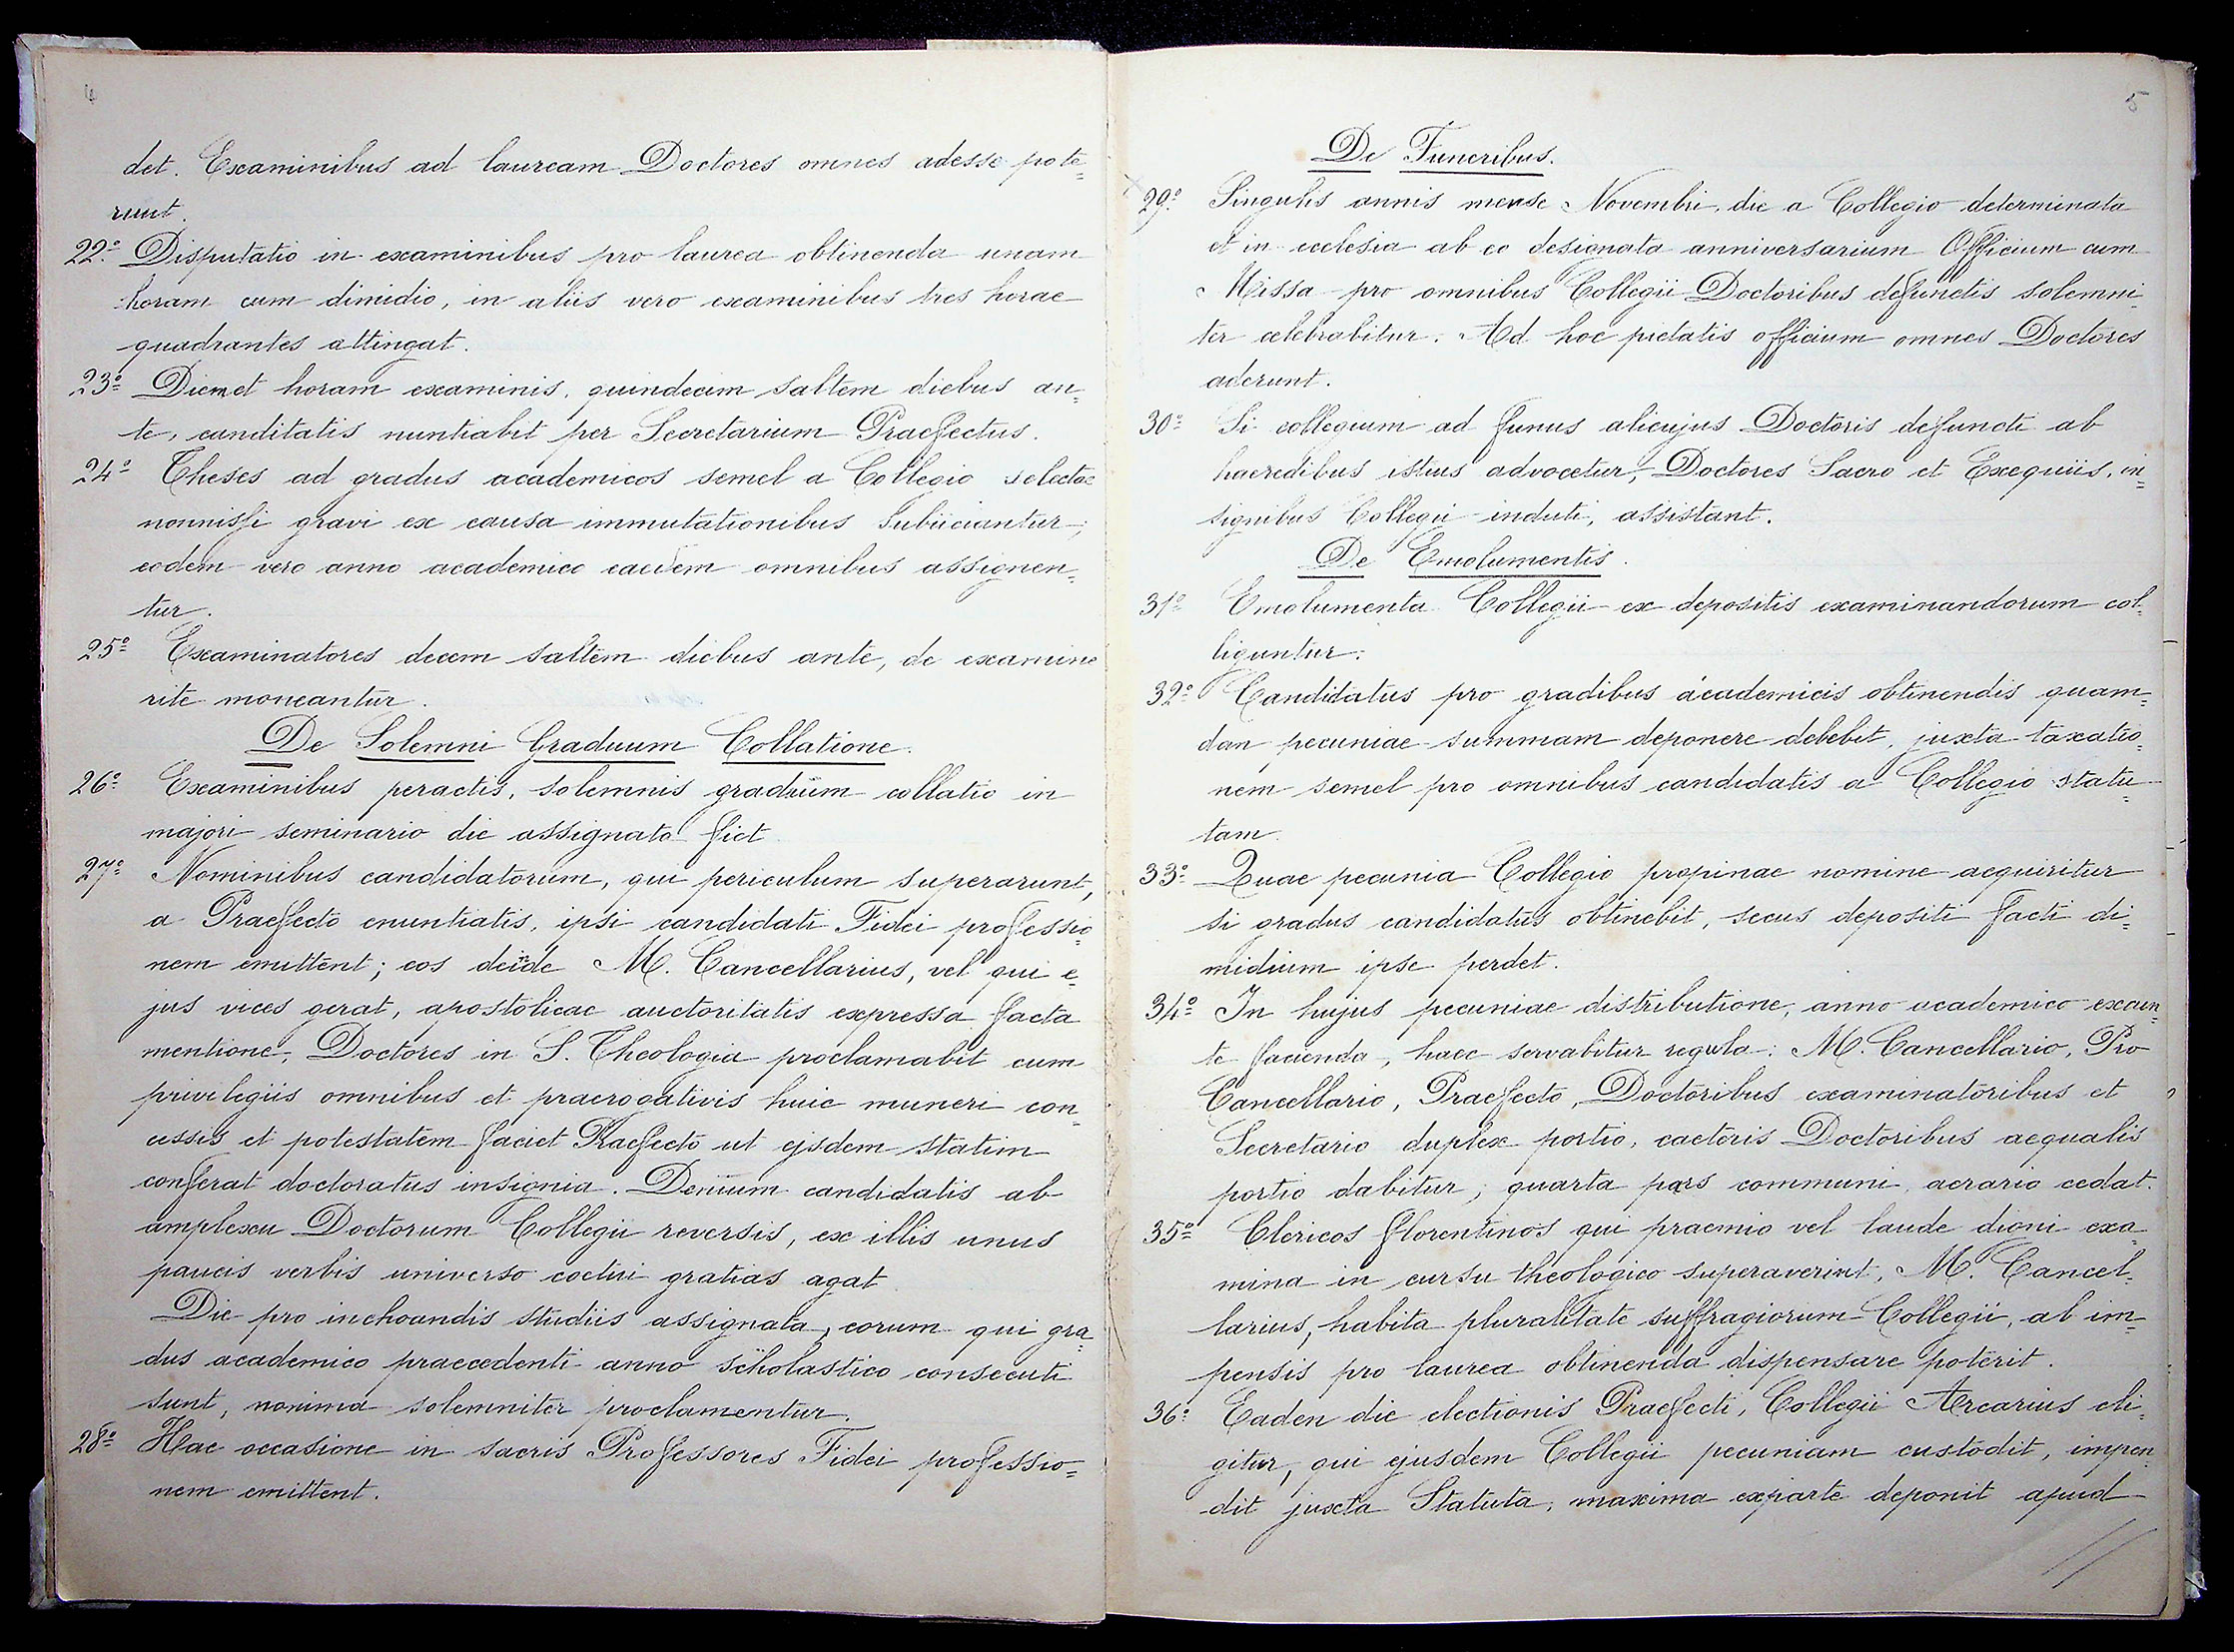 4
det. Examinibus ad lauream Doctores omnes adesse pote=
runt.
22º Disputatio in examinibus pro laurea obtinenda unam
horam cum dimidio, in aliis vero examinibus tres horae
quadrantes attingat.
23º Diem et horam examinis, quindecim saltem diebus an=
te, canditatis nuntiabit per Secretarium Praefectus.
24º Theses ad gradus academicos semel a Collegio selectae
nonnisi gravi ex causa immutationibus subiiciantur;
eodem vero anno academico eaedem omnibus assignen=
tur.
25º Examinatores decem saltem diebus ante, de examine
rite moneantur.
De Solemni Graduum Collatione.
26º Examinibus peractis, solemnis graduum collatio in
majori seminario die assignato fiet
27º Nominibus candidatorum, qui periculum superarunt,
a Praefecto enuntiatis, ipsi candidati Fidei professio=
nem emittent; eos deinde M. Cancellarius, vel qui e=
jus vices gerat, apostolicae auctoritatis expressa facta
mentione, Doctores in S. Theologia proclamabit cum
privilegiis omnibus et praerogativis huic muneri con=
cessis et potestatem faciet Praefecto ut ejsdem statim
conferat doctoratus insignia. Demum candidatis ab
amplexu Doctorum Collegii reversis, ex illis unus
paucis verbis universo coetui gratias agat
Die pro inchoandis studiis assignata, eorum qui gra=
dus academico praecedenti anno scholastico consecuti
sunt, nomina solemniter proclamentur.
28º Hac occasione in sacris Professores Fidei professio=
nem emittent.
5
De Funeribus.
29º Singulis annis mense Novembri, die a Collegio determinata
et in ecclesia ab eo designata anniversarium Officium cum
Missa pro omnibus Collegii Doctoribus defunctis solemni=
ter celebrabitur. Ad hoc pietatis officium omnes Doctores
aderunt.
30º Si collegium ad funus alicujus Doctoris defuncti ab
haeredibus istius advocetur, Doctores Sacro et Exequiis, in=
signibus Collegii induti, assistant.
De Emolumentis.
31º Emolumenta Collegii ex depositis examinandorum col=
liguntur.
32º Candidatus pro gradibus academicis obtinendis quam=
dan pecuniae summam deponere debebit, juxta taxatio=
nem semel pro omnibus candidatis a Collegio statu=
tam.
33º Quae pecunia Collegio propinae nomine acquiritur
si gradus candidatus obtinebit, secus depositi facti di=
midium ipse perdet.
34º In hujus pecuniae distributione, anno academico exeun=
te facienda, haec servabitur regula: M. Cancellario, Pro
Cancellario, Praefecto, Doctoribus examinatoribus et
Secretario duplex portio, caeteris Doctoribus aequalis
portio dabitur; quarta pars communi aerario cedat.
35º Clericos florentinos qui praemio vel laude digni exa=
mina in cursu theologico superaverint, M. Cancel=
larius, habita pluralitate suffragiorum Collegii, ab im=
pensis pro laurea obtinenda dispensare poterit.
36º Eaden die electionis Praefecti, Collegii Arcarius eli=
gitur, qui ejusdem Collegii pecuniam custodit, impen=
dit juxta Statuta, maxima exparte deponit apud